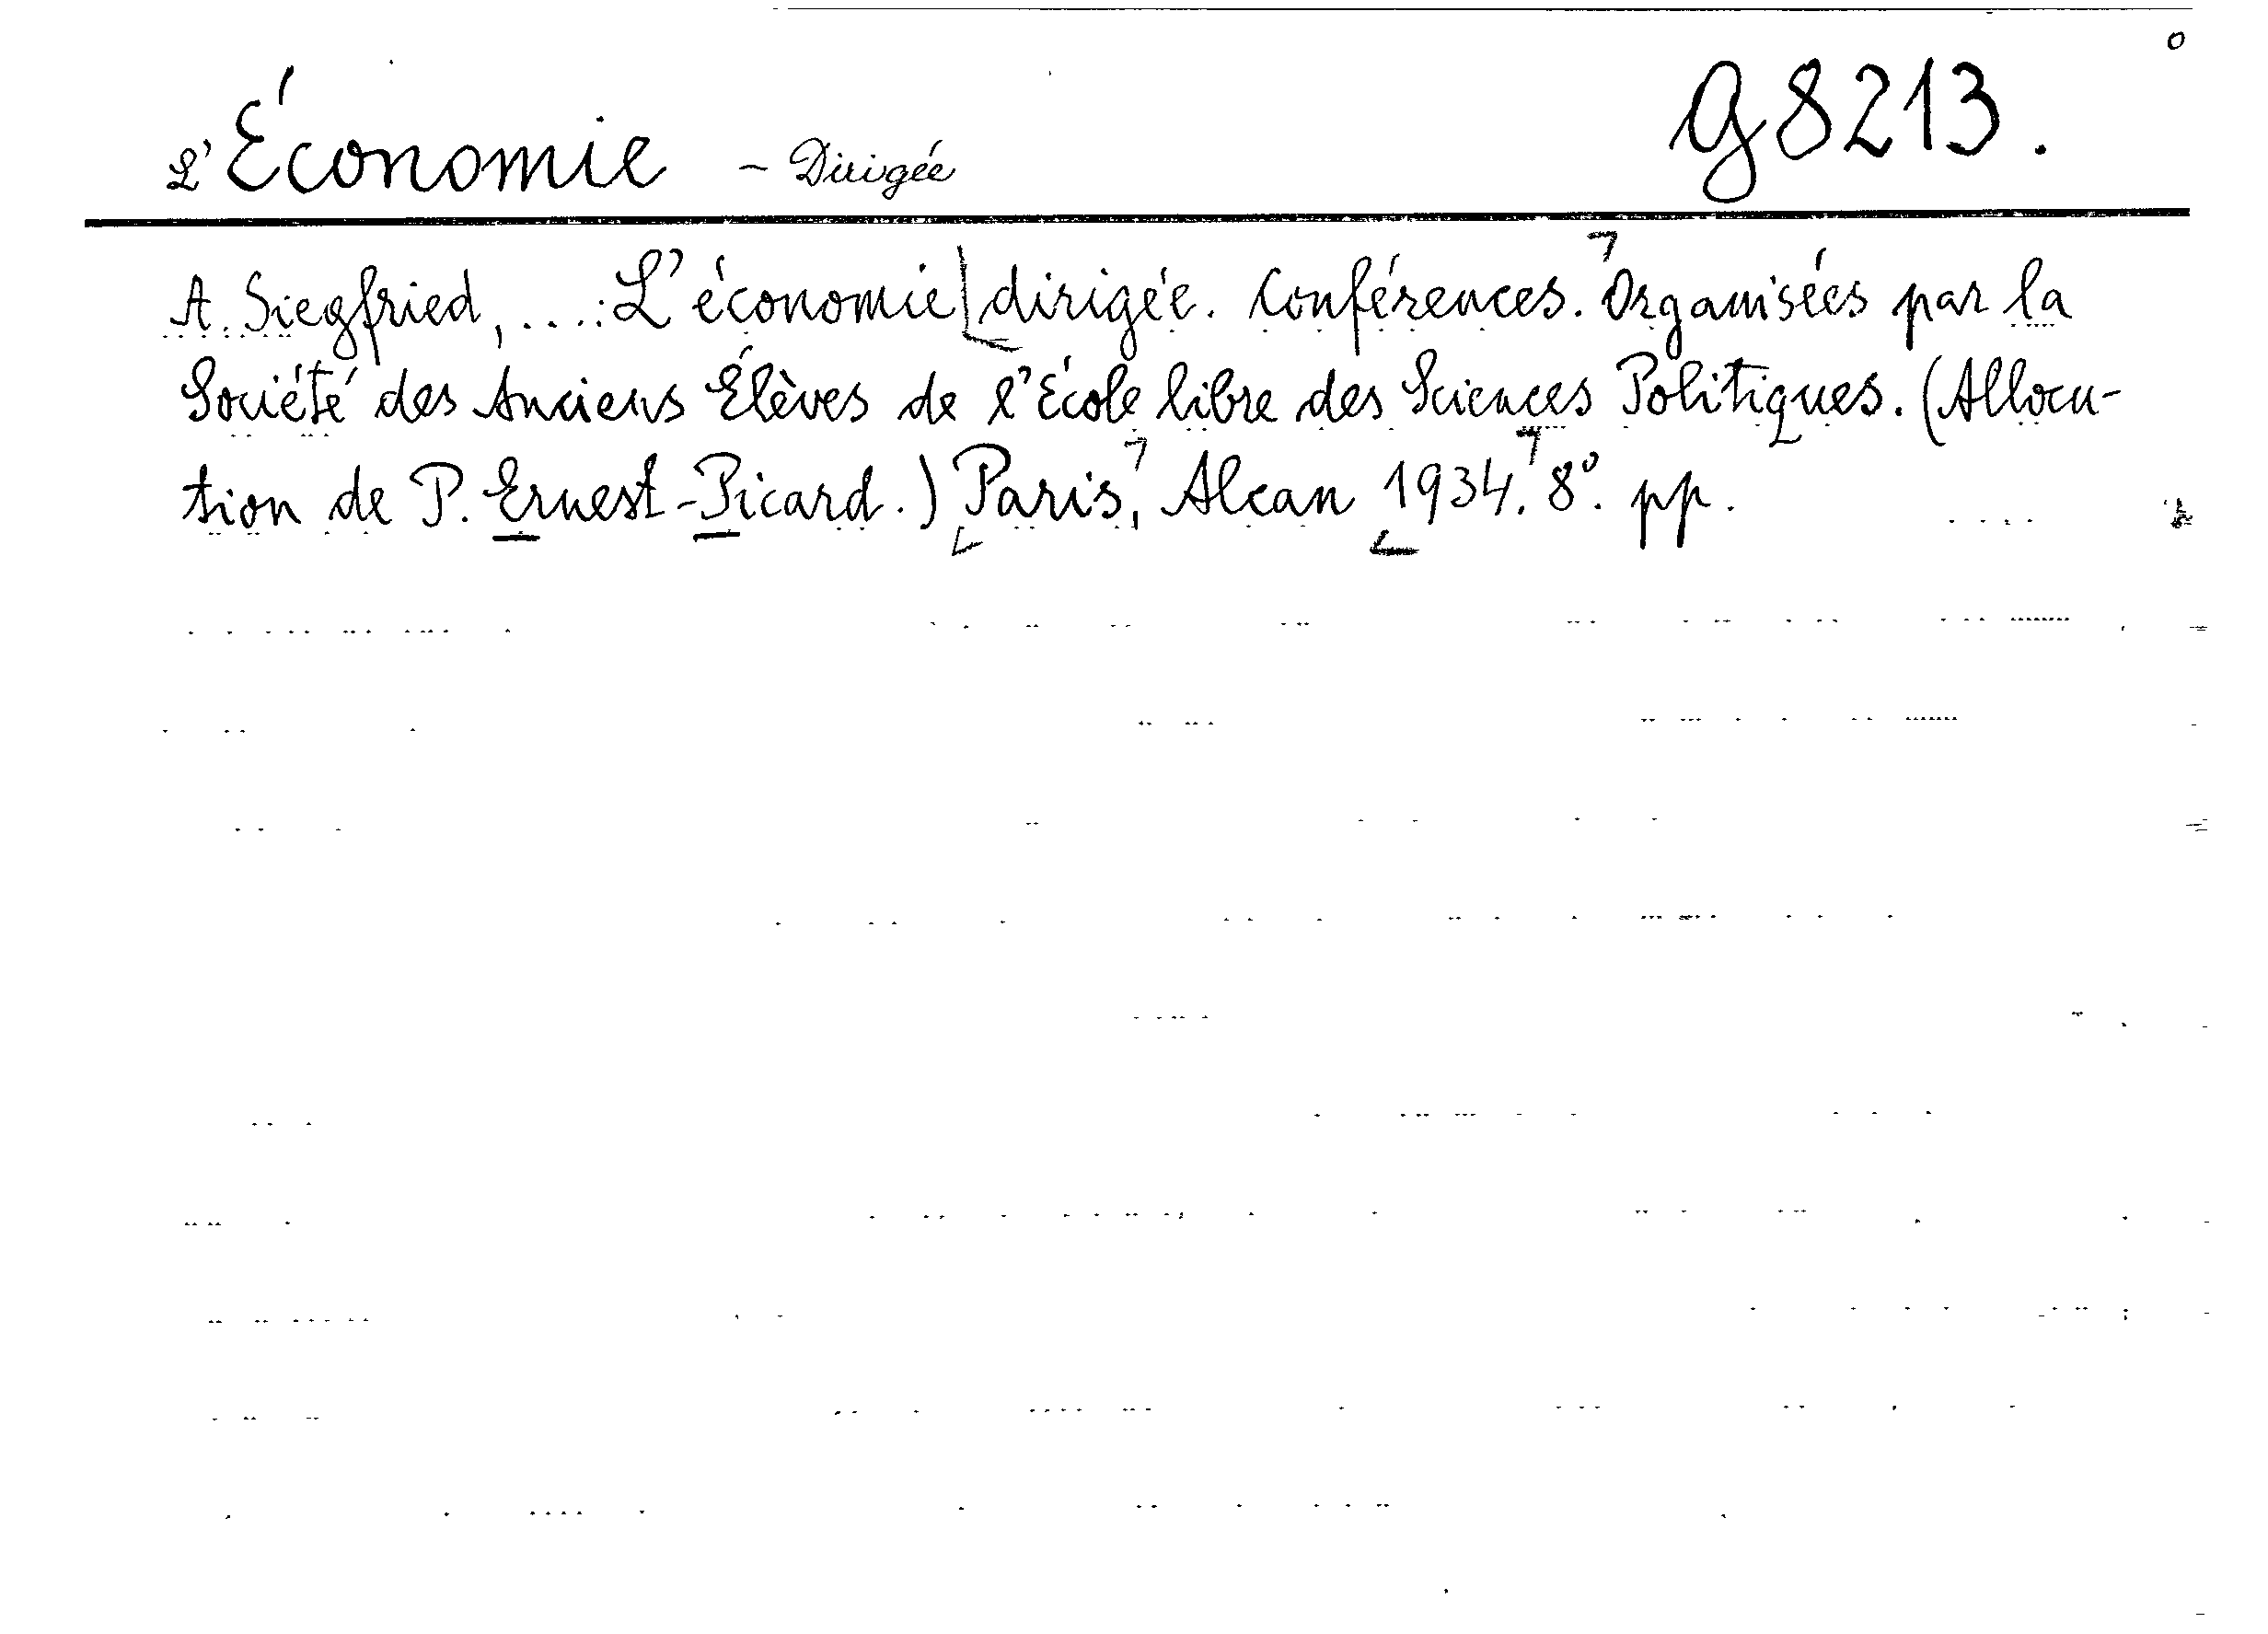 L' Économie - Dirigée G 8213.
A. Siegfried, ...: L' économie dirigée. Conférences. Organisées par la
Société des Anciens Élèves de l'École libre des Sciences Politiques. (Allocu-
tion de P. Ernest-Picard.) Paris, Alcan 1934. 8°. pp.